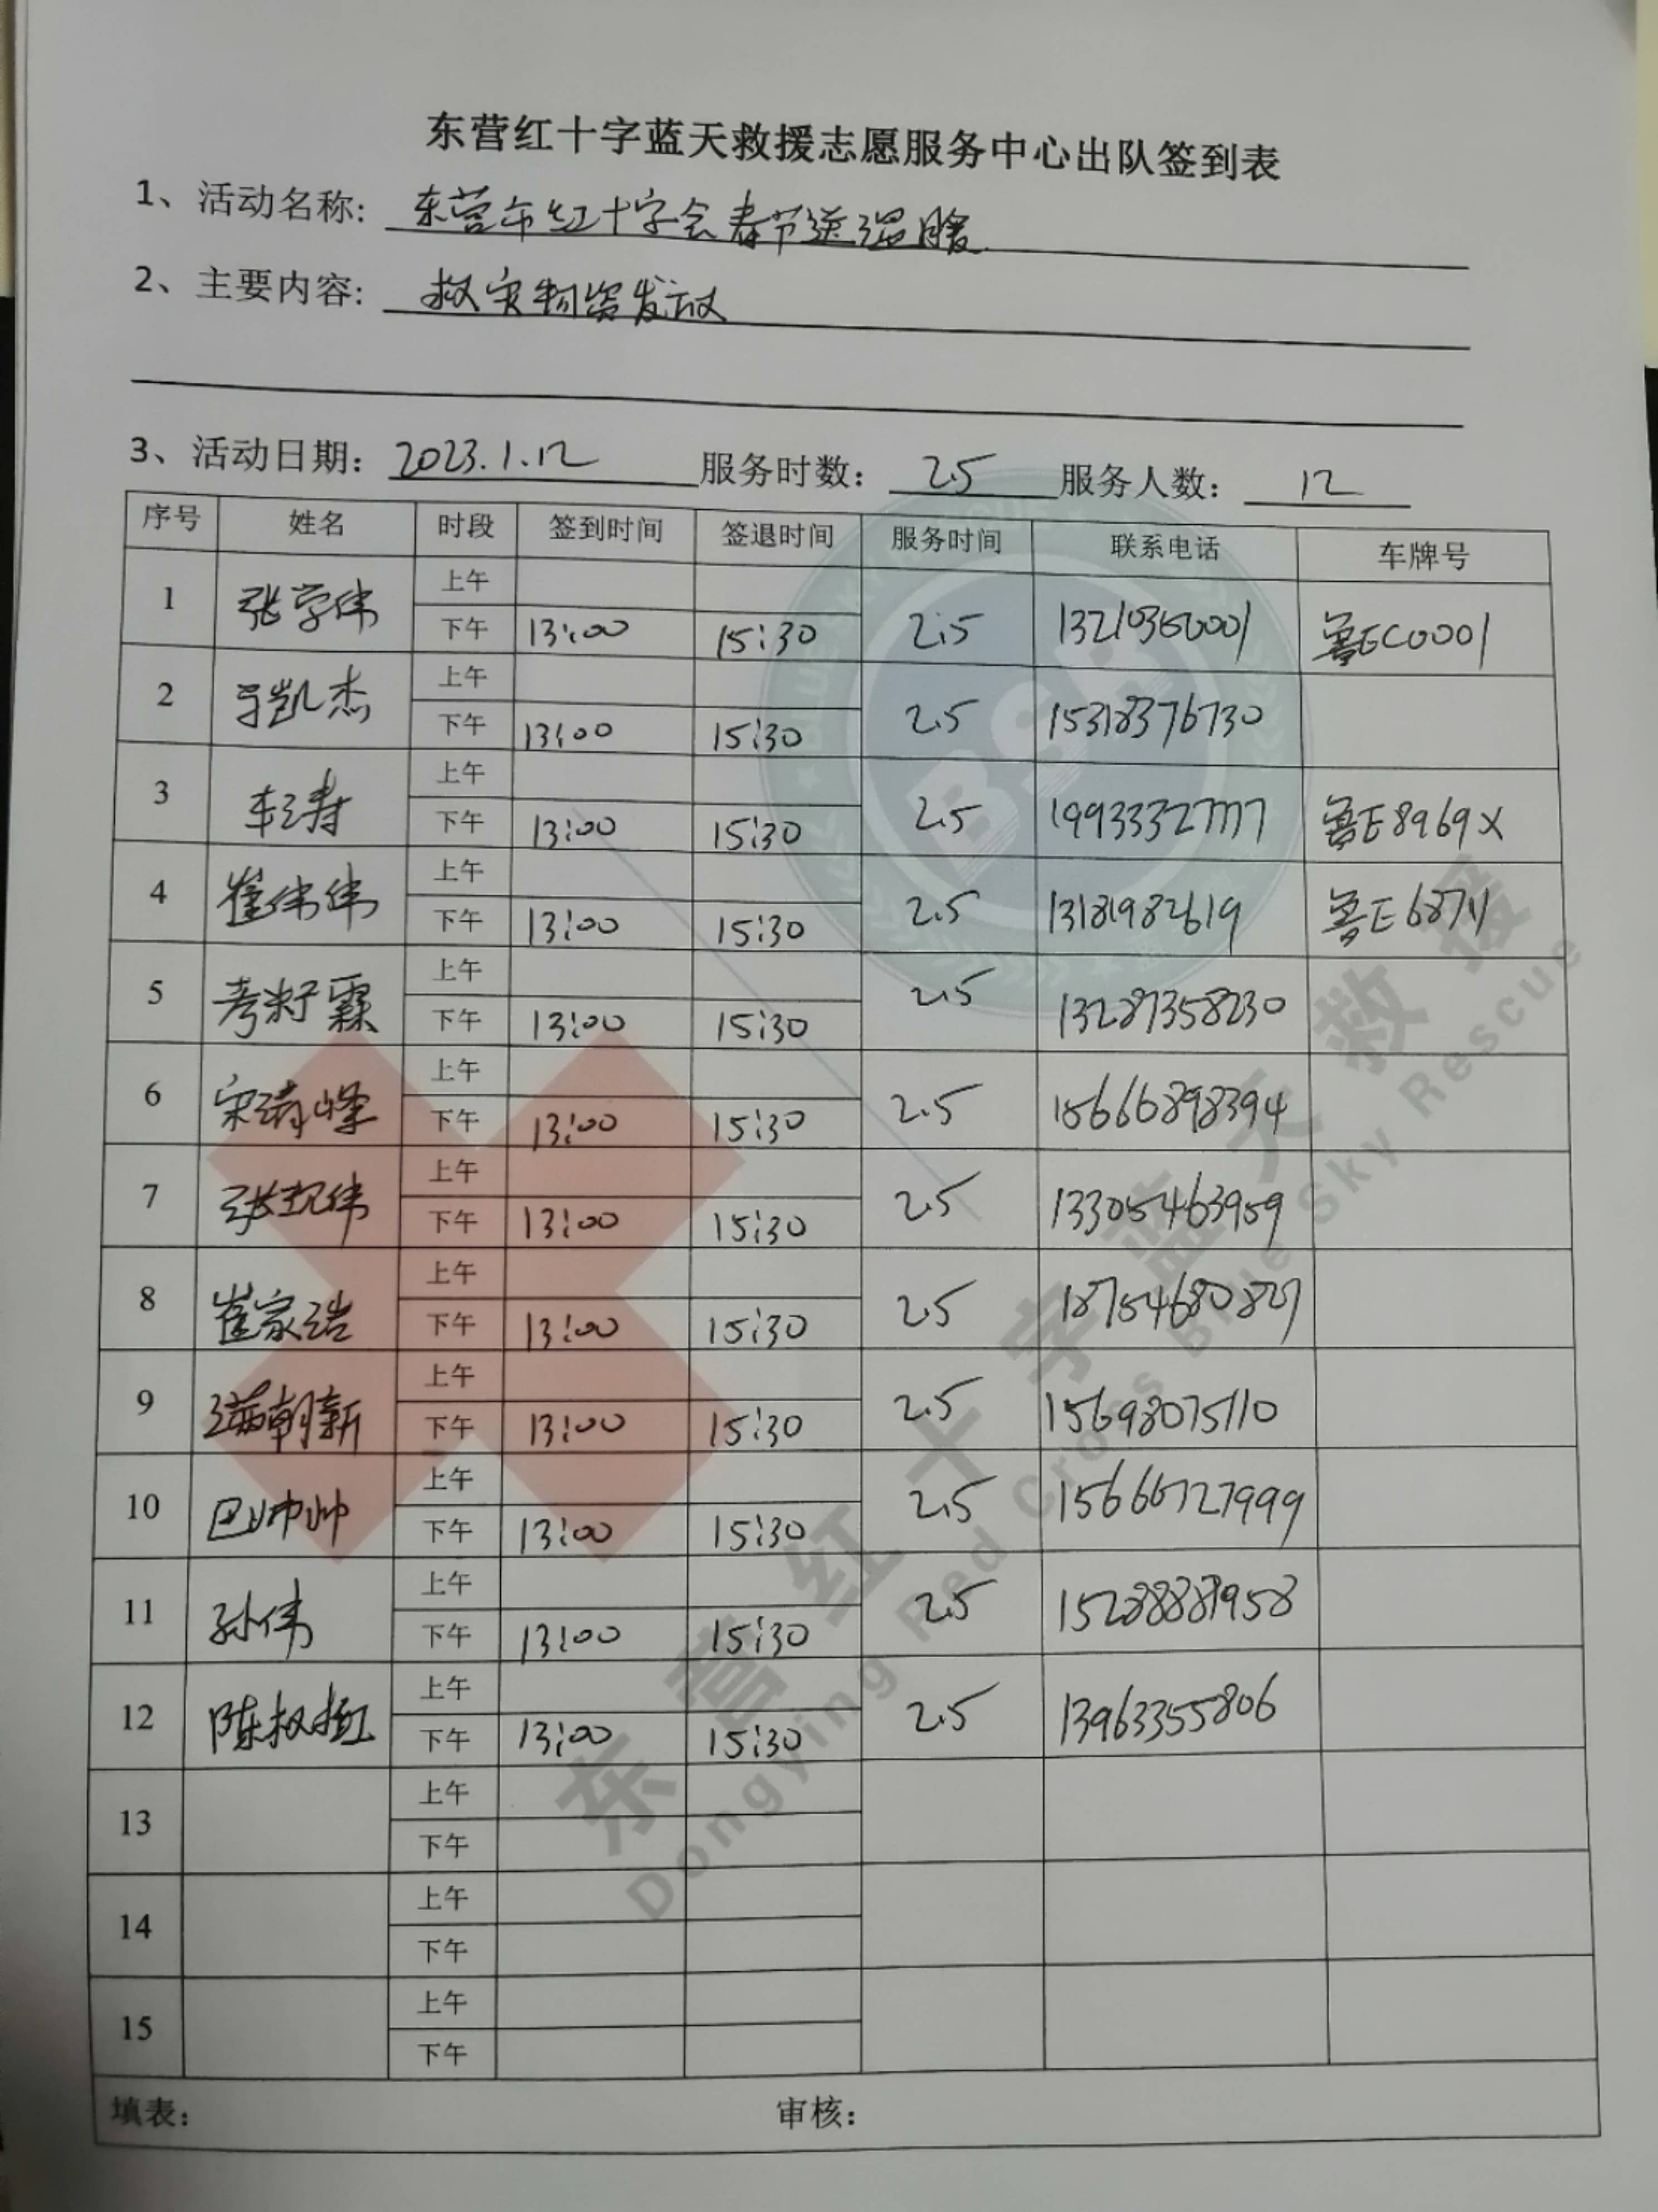 东营红十字蓝天救援志愿服务中心出队签到表
1、活动名称: 东营市红十字会春节送温暖
2、主要内容: 救灾物资发放
3、活动日期: 2023.1.12 服务时数: 2.5 服务人数: 12
序号 姓名 时段 签到时间 签退时间 服务时间 联系电话 车牌号
1 张学伟 上午
下午 13:00 15:30 2.5 13210360001 鲁EC0001
2 于凯杰 上午
下午 13:00 15:30 2.5 15318376730
3 车涛 上午
下午 13:00 15:30 2.5 19933327777 鲁E8969X
4 崔伟伟 上午
下午 13:00 15:30 2.5 13181982619 鲁E68711
5 考籽霖 上午
下午 13:00 15:30 2.5 13287358230
6 宋清峰 上午
下午 13:00 15:30 2.5 15666898394
7 张观伟 上午
下午 13:00 15:30 2.5 13305463959
8 崔家浩 上午
下午 13:00 15:30 2.5 18754680827
9 满朝新 上午
下午 13:00 15:30 2.5 15698075110
10 巴帅帅 上午
下午 13:00 15:30 2.5 15666727999
11 孙伟 上午
下午 13:00 15:30 2.5 15288881958
12 陈权 上午
下午 13:00 15:30 2.5 13963355806
13 上午
下午
14 上午
下午
15 上午
下午
填表: 审核:
BSR
东营红十字蓝天救援
Dongying Red Cross Blue Sky Rescue